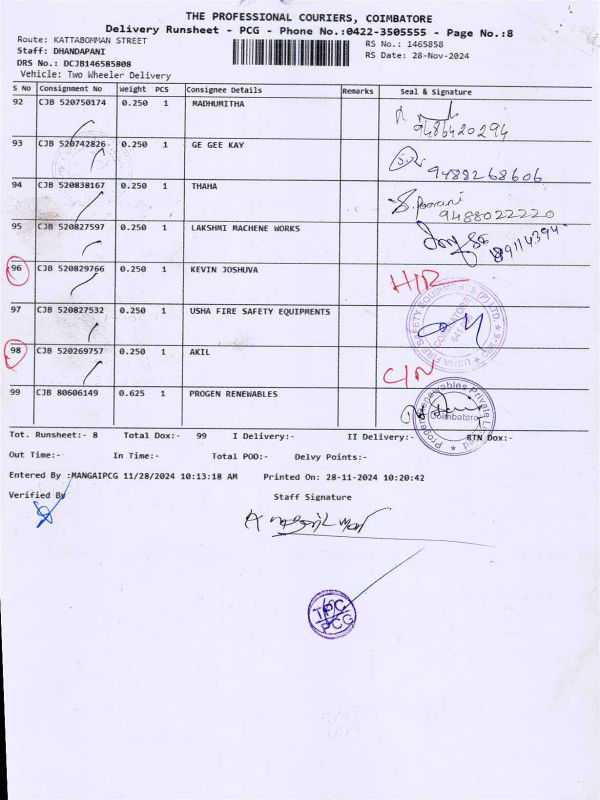 THE PROFESSIONAL COURIERS, COIMBATORE
Delivery Runsheet - PCG - Phone No.:0422-3505555 - Page No.:8
Route: KATTABOMMAN STREET
RS No.: 1465858
Staff: DHANDAPANI
RS Date: 28-Nov-2024
DRS No.: DCJB146585808
Vehicle: Two Wheeler Delivery
S No Consignment No Weight PCS Consignee Details Remarks Seal & Signature
92 CJB 520750174 0.250 1 MADHUMITHA
9486420294
93 CJB 520742826 0.250 1 GE GEE KAY
9488268606
94 CJB 520838167 0.250 1 THAHA
S. Poorani
9488022220
95 CJB 520827597 0.250 1 LAKSHMI MACHENE WORKS
96 CJB 520829766 0.250 1 KEVIN JOSHUVA
97 CJB 520827532 0.250 1 USHA FIRE SAFETY EQUIPMENTS
98 CJB 520269757 0.250 1 AKIL
99 CJB 80606149 0.625 1 PROGEN RENEWABLES
Progen Renewables Private Limited
Coimbatore
Tot. Runsheet:- 8 Total Dox:- 99 I Delivery:- II Delivery:- RTN Dox:-
Out Time:- In Time:- Total POD:- Delvy Points:-
Entered By :MANGAIPCG 11/28/2024 10:13:18 AM Printed On: 28-11-2024 10:20:42
Verified By Staff Signature
TPC
PCG